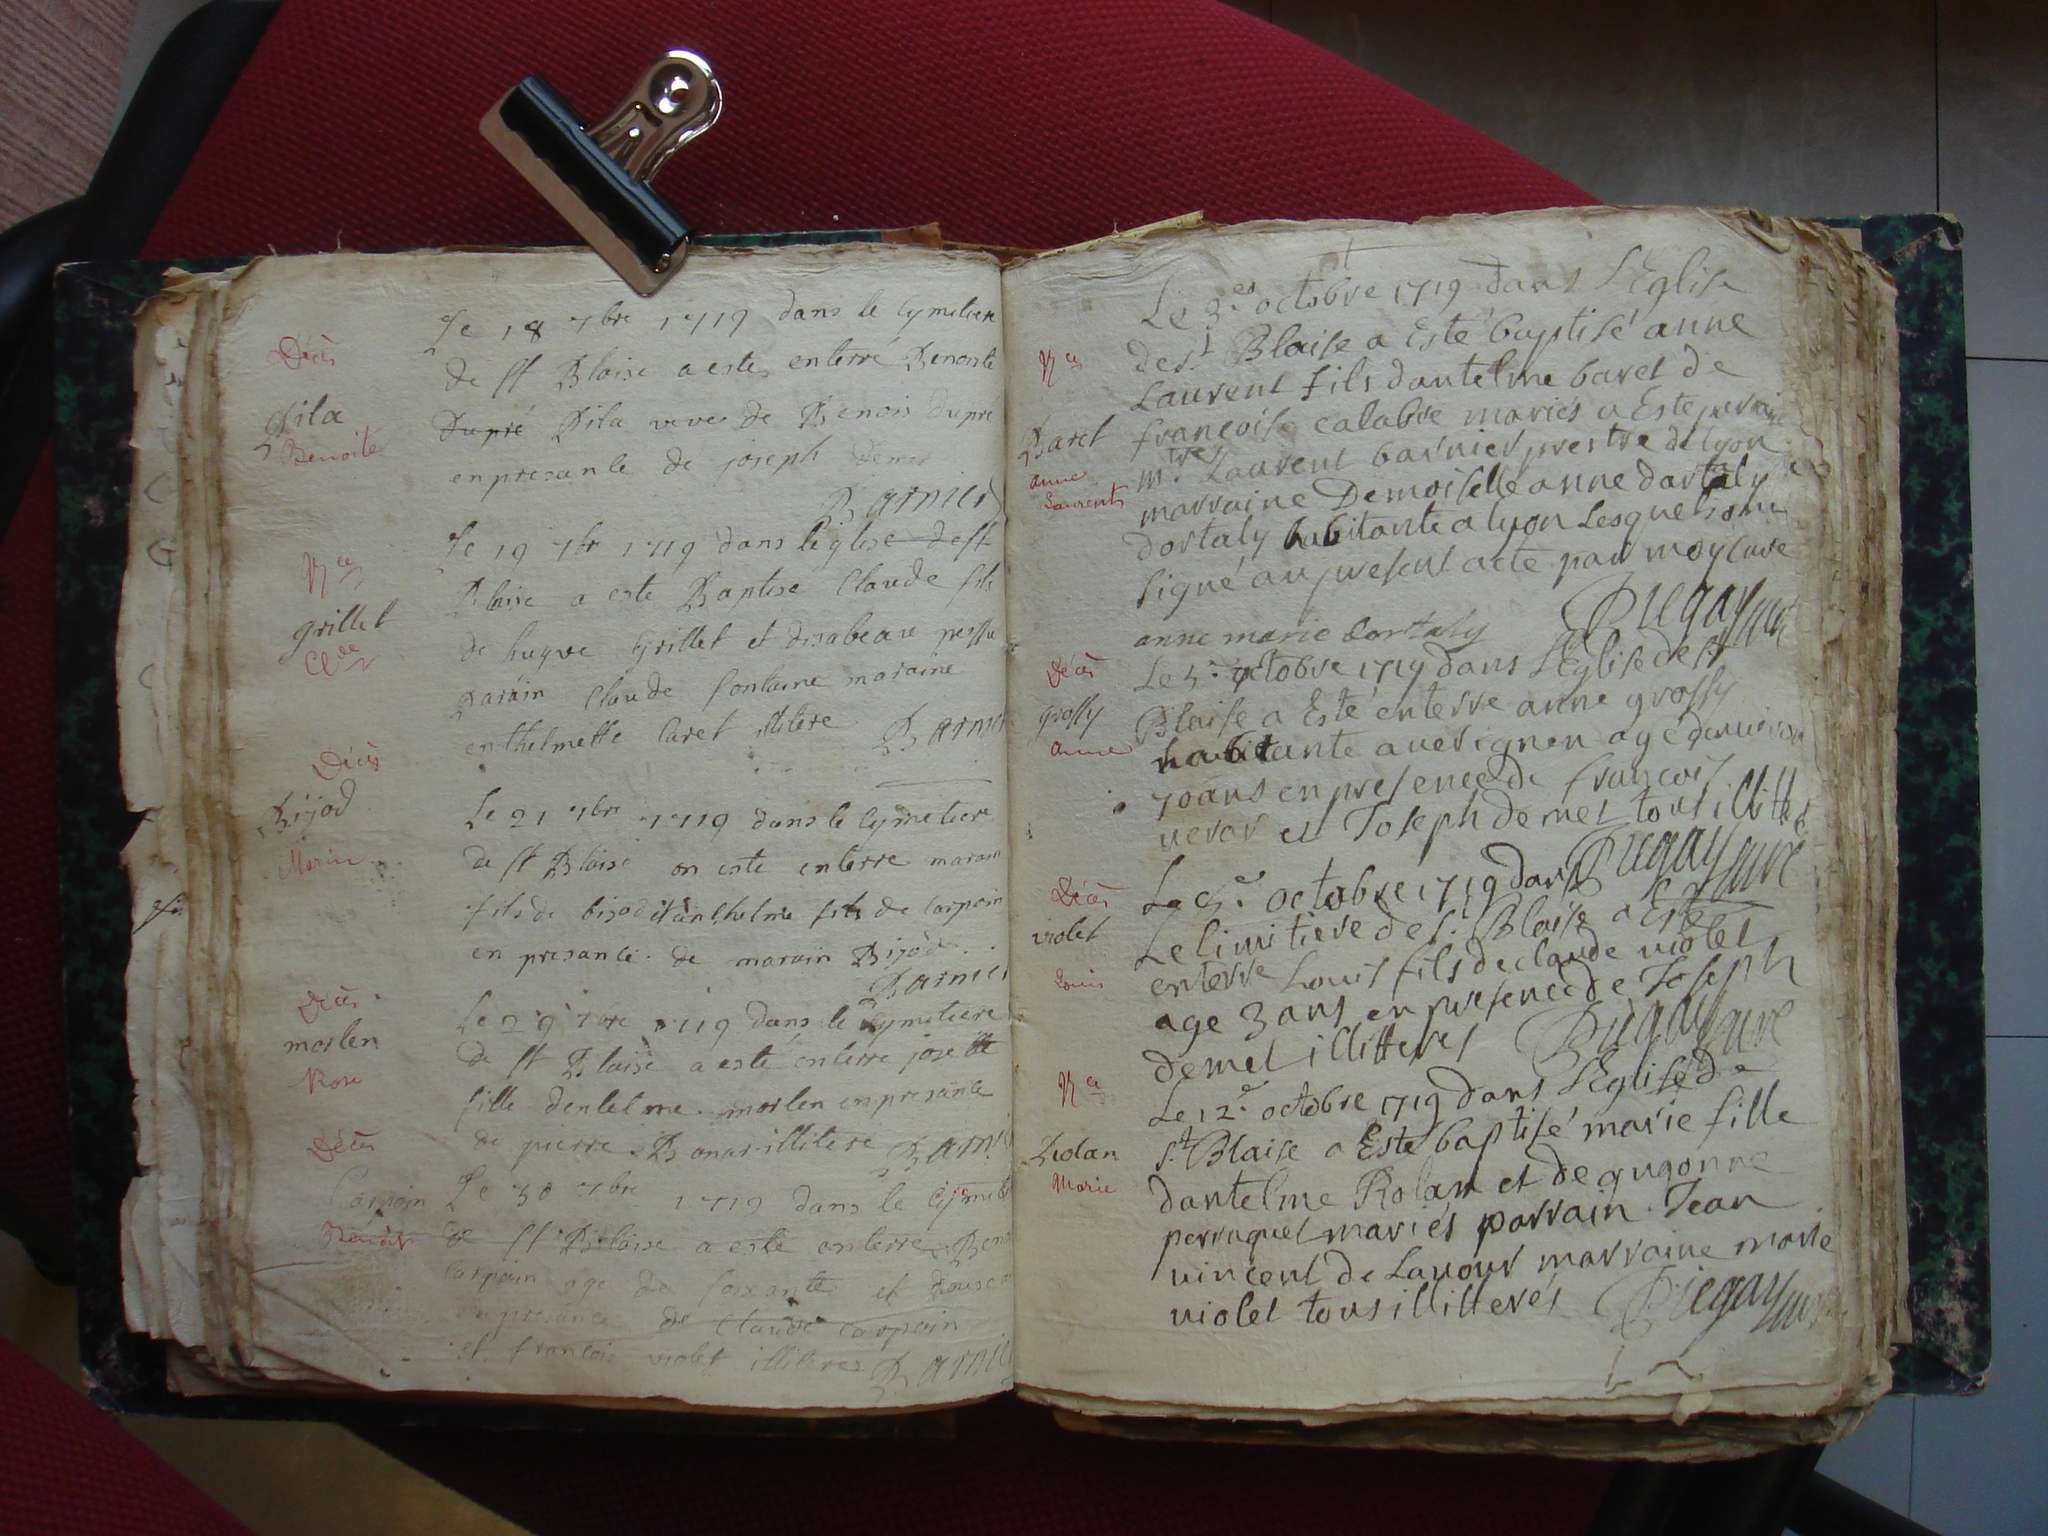 Décès
Pila
Benoite
Le 18 7bre 1719 dans le Cymetiere
de St Blaise a este enterré Benoite
Dupré Pila veve de Benois dupré
en presante de joseph demet
Barnier
Nce
grillet
Clde
Le 19 7br 1719 dans léglise de st
Blaise a este Baptise Claude fils
de hugue Grillet et disabeau
parain Claude fontaine maraine
enthelmette Caret illitere Barnier
Décès
Bijod
Marin
Le 21 7bre 1719 dans le Cymetiere
de st Blaise on este enterre marain
fils de bijod et anthelme fils de Carpain
en presante de marain Bijod
Barnier
Décès
morlen
Rose
Le 29 7bre 1719 dans le Cymetiere
de st Blaise a esté enterré josette
fille dentelme morlen en presante
de pierre Bonar illitere Barnier
Décès
Carpain
Benoit
Le 30 7bre 1719 dans le Cymeti
de st Blaise a esté enterre Beno
Carpain age de soixante et douse
en presance de Claude Carpain
et francois violet illiteres Barnier
Le 3e octobre 1719 dans LEglise
de st Blaise a Esté baptisé anne
Laurent fils dantelme baret de
françoise calabre mariés a Este parrain
mtre Laurent barnier prestre de lyon
marraine Demoiselle anne dartaly
dortaly habitante a lyon Lesquels ont
signé au present acte par moy curé
anne marie dortaly Diegay curé
Nce
Baret
anne
Laurent
Décès
grossy
anne
Le 5e octobre 1719 dans LEglise de st
Blaise a Esté enterre anne grossy
habitante a uerignen agé denuiron
70 ans en presence de françois
ueror et Joseph demet tous illittes
Diegay curé
Décès
violet
Louis
Le 5e octobre 1719 dans
Le simitiere de st Blaise a Esté
enterré Louis fils de claude violet
age 3 ans en presence de Joseph
demet illitteres Diegay curé
Nce
Rolan
Marie
Le 12e octobre 1719 dans LEglise de
st Blaise a Este baptisé marie fille
dantelme Rolan et de gugonne
perruquet mariés parrain Jean
vincent de Lavour marraine marie
violet tous illitterés Diegay curé